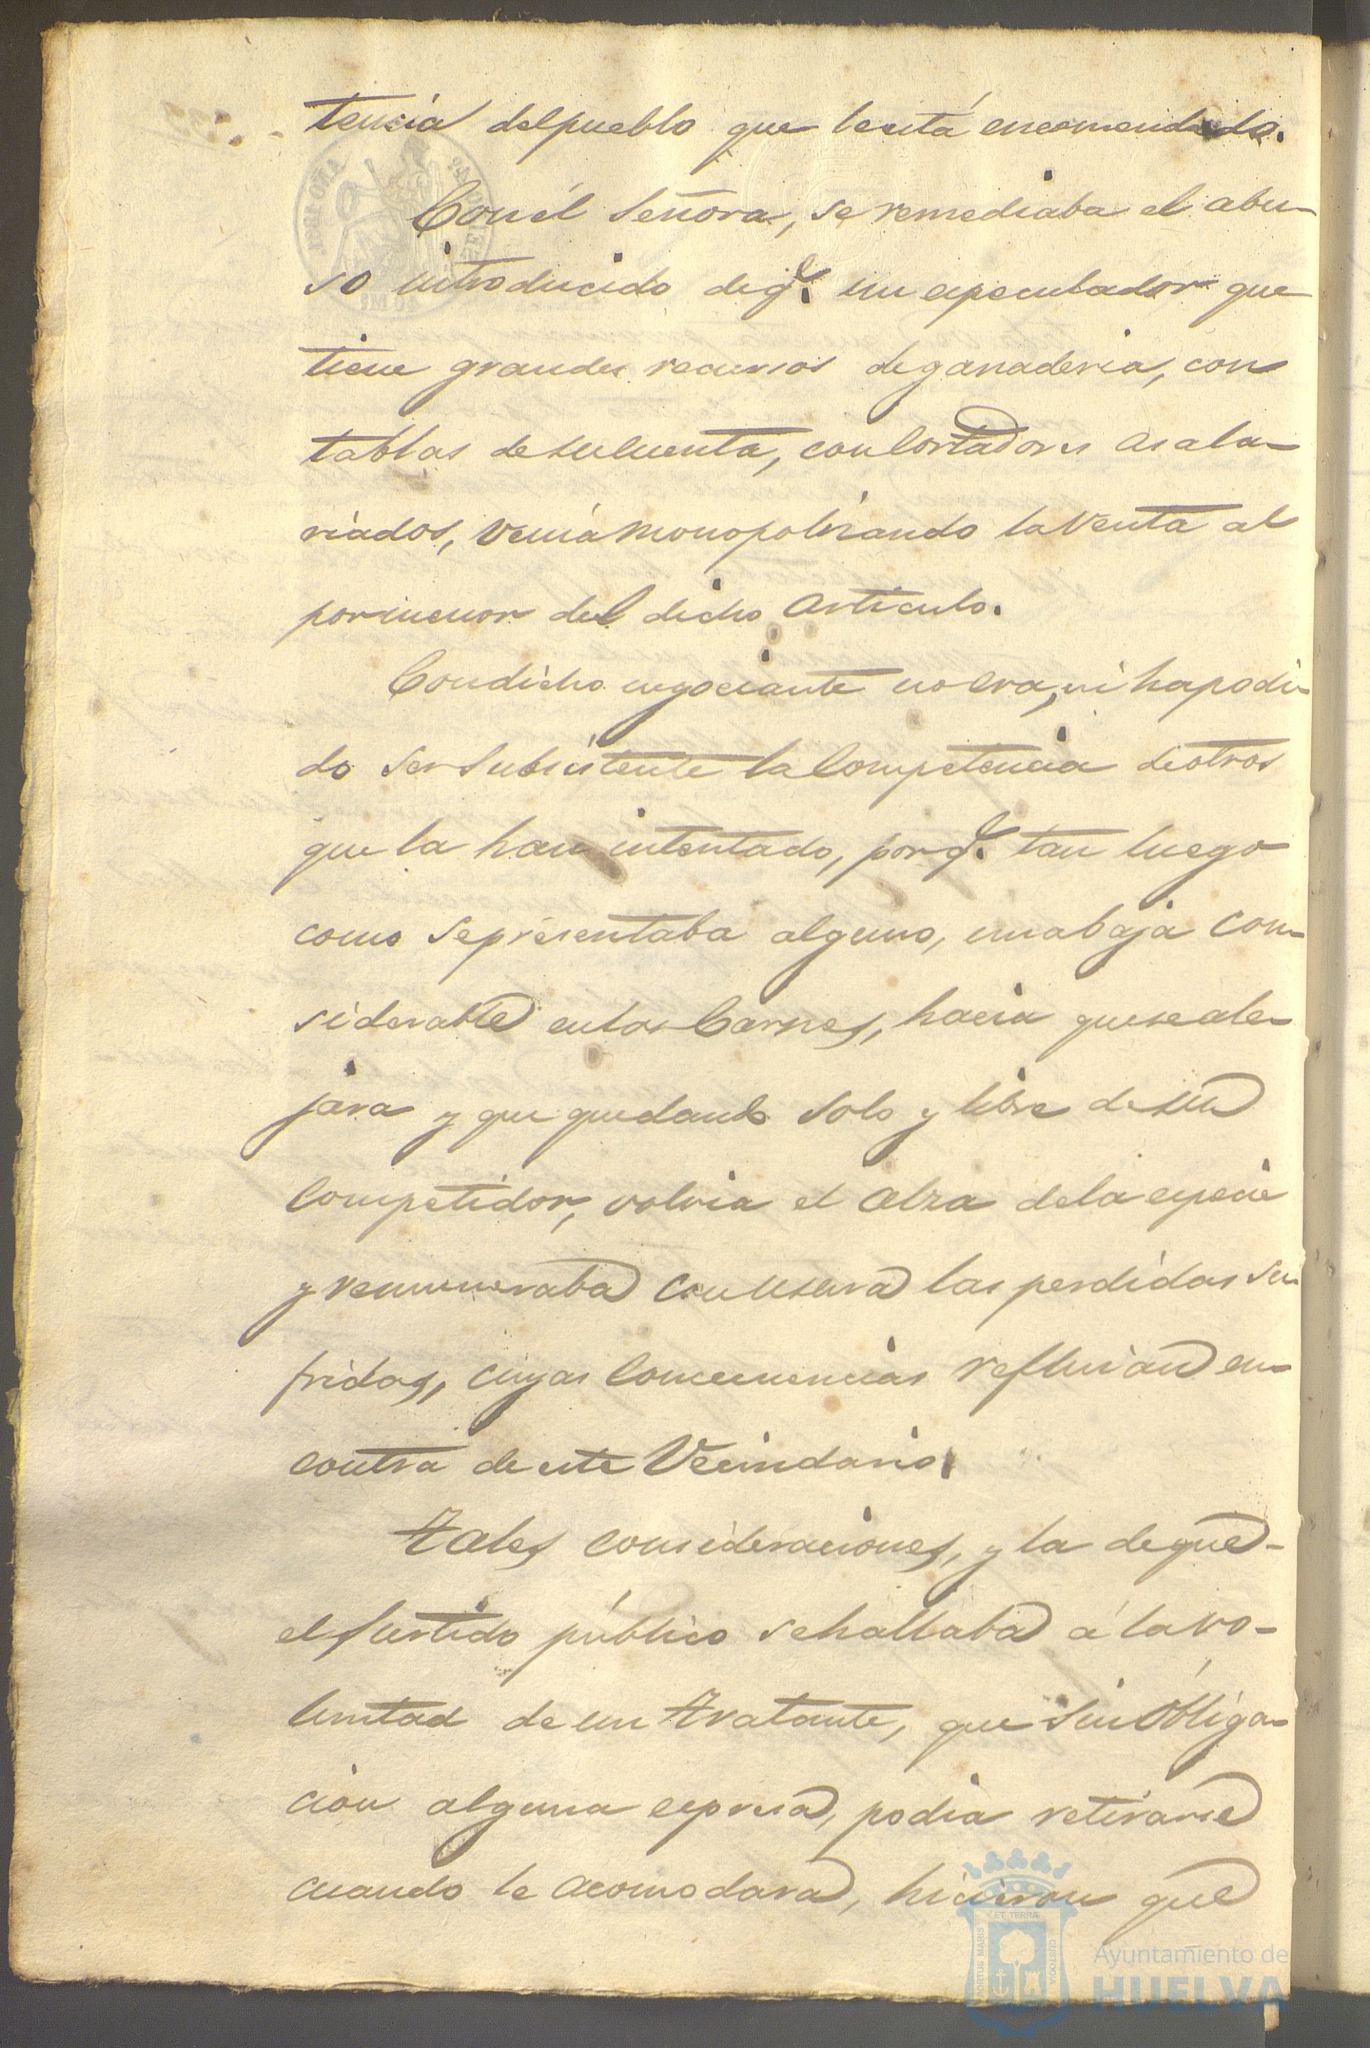 tencia del pueblo que le está encomendado.
Con él Señora, se remediaba el abu-
so introducido de q.e un especulador que
tiene grandes recursos de ganaderia, con
tablas de su cuenta, con Cortadores asala-
riados, venia monopolizando la venta al
pormenor del dicho articulo.
Con dicho negociante no era, ni ha podi-
do ser subsistente la Competencia de otros
que la han intentado, porq.e tan luego
como se presentaba alguno, una baja con-
siderable en las Carnes, hacia que se ale-
jara y que quedando solo y libre de su
Competidor, volvia el alza de la especie
y remuneraba con usura las perdidas su-
fridas, cuyas Consecuencias refluian en
contra de este Vecindario.
Tales consideraciones, y la de que-
el surtido público se hallaba á la vo-
luntad de un tratante, que sin Obliga-
cion alguna espresa, podia retirarse
cuando le acomodara, hicieron que
Ayuntamiento de
HUELVA
PORTUS MARIS
ET TERRA
CUSTODIA